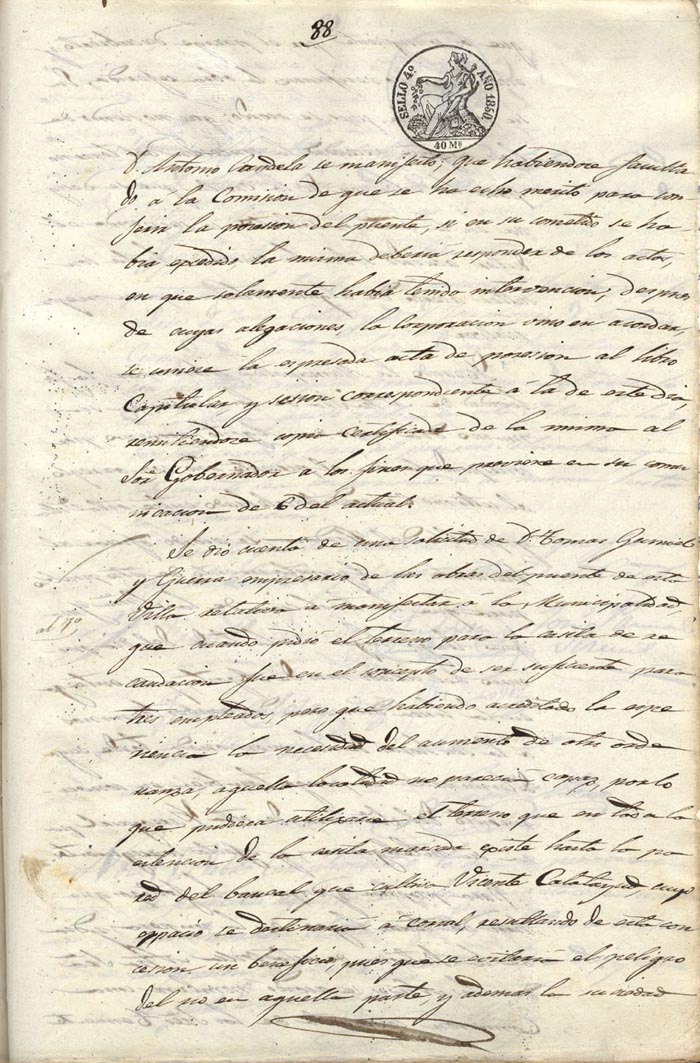 88
SELLO 4º AÑO 1850
40 Ms
D. Antonio Candela se manifestó; que habiendose faculta
do a la Comision de que se ha echo merito para con
ferir la posesion del puente, si en su cometido se ha
bia excedido, la misma deberia responder de los actos,
en que solamente habia tenido intervencion, despues
de cuyas alegaciones, la Corporacion vino en acordar,
se une la espresada acta de posesion al libro
Capitular y sesion correspondiente á la de este dia,
remitiendose copia certificada de la misma al
Sor Gobernador a los fines que previene en su comu
nicacion de 6 del actual.
Se dio cuenta de una solicitud de D. Tomas Gumiel
y Guerra empresario de las obras del puente de esta
Villa relativa a manifestar á la Municipalidad
al 4º
que cuando pidió el terreno para la casita de re
caudacion fue en el concepto de ser suficiente para
tres empleados, pero que habiendo acreditado la espe
riencia la necesidad del aumento de otro orde
nanza, aquella localidad no parecia capaz, por lo
que pudiera utilizarse el terreno que en toda la
estencion de la casita marcada existe hasta la pa
red del bancal que cultiva Vicente Calatayud, cuyo
espacio se destinaria á corral, resultando de esta con
cesion un beneficio, pues que se evitaria el peligro
del rio en aquella parte, y ademas la suciedad